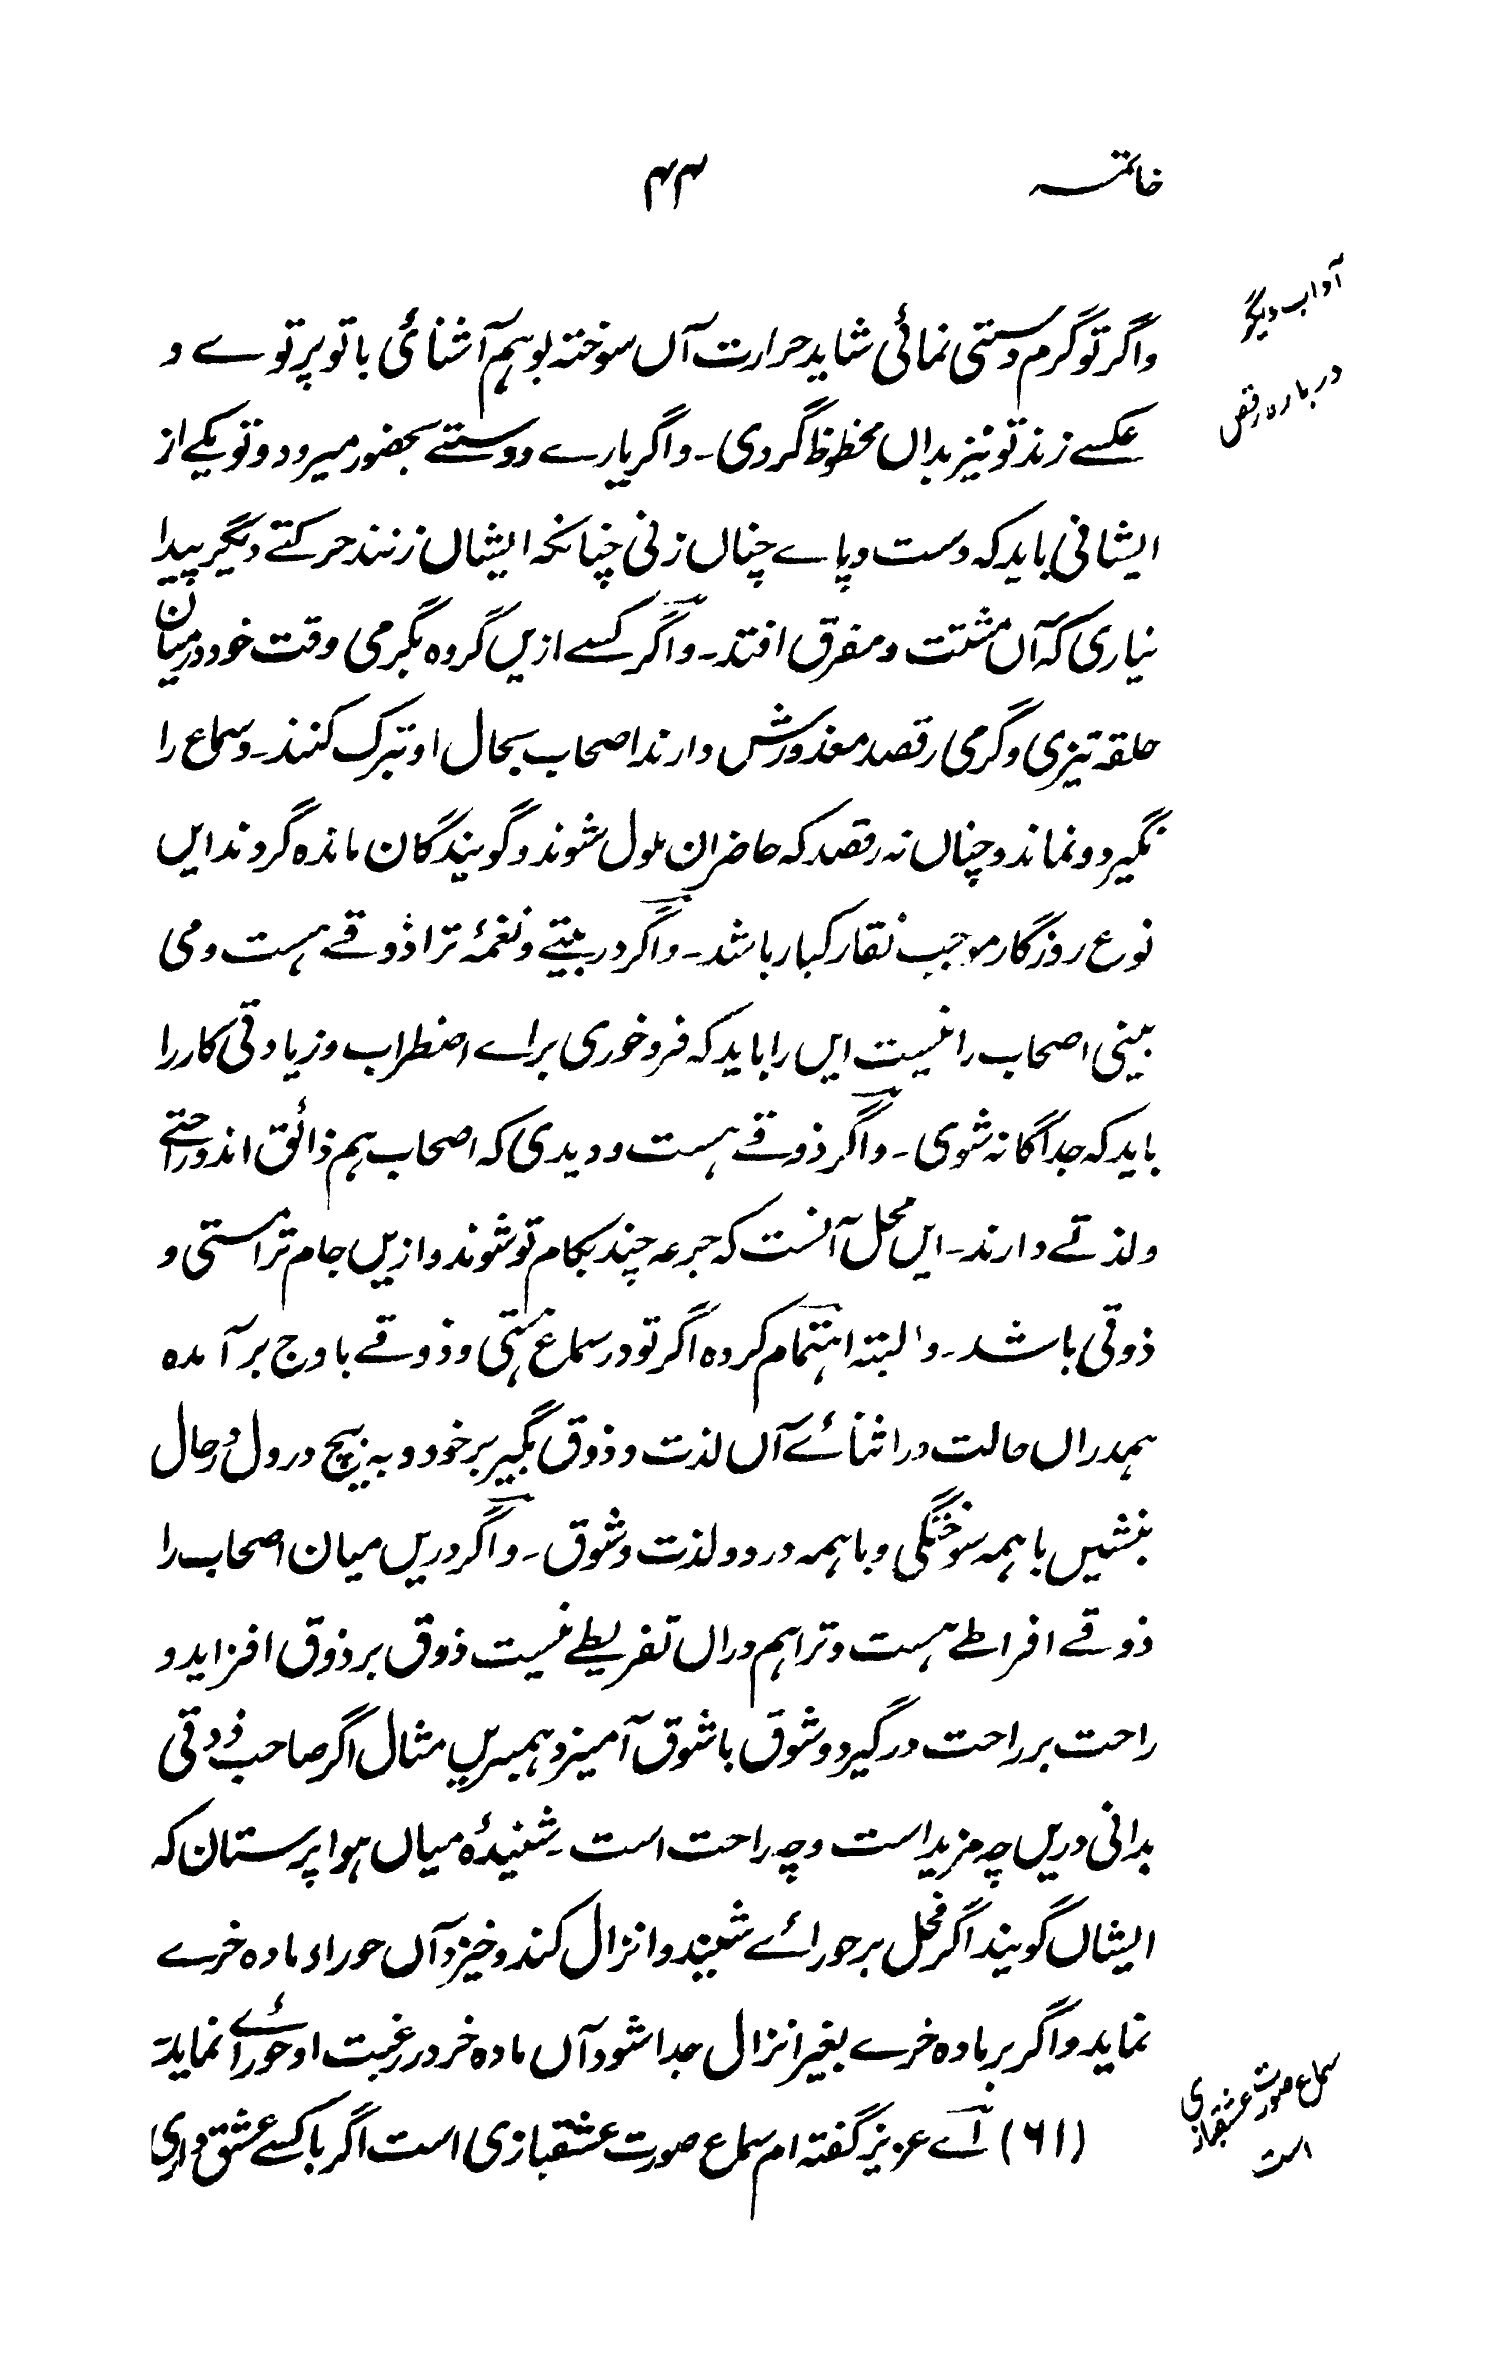 خاتمہ
۴۴
آداب دیگر
درباره رقص
واگر تو گرم دستی نمائی شاید حرارت آں سوختہ بو ہم آشنائی باتو پرتوے و
عکسے زند تو نیز بداں محظوظ گردی۔ واگر یارے دوستے بحضور میرود و تو یکے از
ایشانی باید کہ دست و پاے چناں زنی چنانکہ ایشاں زنند حرکتے دیگر پیدا
نیاری کہ آں مشتت و مفرق افتد۔ واگر کسے ازیں گروہ بگرمی وقت خود درمیان
حلقہ تیزی و گرمی رقصد معذورش دارند اصحاب بحال او تبرک کنند۔ وسماع را
نگیرد و نماند و چناں نہ رقصد کہ حاضران ملول شوند و گویندگان ماندہ گردند ایں
نوع روزگار موجب نقار کبار باشد۔ واگر در بیتے و نغمۂ ترا ذوقے ہست و می
بینی اصحاب را نیست ایں را باید کہ فرو خوری براے اضطراب و زیادتی کار را
باید کہ جداگانہ شوی۔ واگر ذوقے ہست و دیدی کہ اصحاب ہم ذائق اند و راحتے
ولذتے دارند۔ ایں محل آنست کہ جرعہ چند بکام تو شوند و ازیں جام ترا مستی و
ذوقی باشد۔ والبتہ اہتمام کردہ اگر تو در سماع ہستی و ذوقے باوج برآمدہ
ہمدراں حالت در اثنائے آں لذت و ذوق بگیر بر خود و بہ پیچ در ول در حال
بنشیں باہمہ سوختگی و باہمہ درد و لذت و شوق۔ واگر دریں میان اصحاب را
ذوقے افراطے ہست و ترا ہم دراں تفریطے نیست ذوق بر ذوق افزاید و
راحت بر راحت درگیرد و شوق با شوق آمیزد ہمبریں مثال اگر صاحب ذوقی
بدانی دریں چہ مزید است و چہ راحت است۔ شنیدۂ میاں ہوا پرستان کہ
ایشاں گویند اگر فحل بر حورائے شبیند و انزال کند و خیزد آں حوراء مادہ خرے
نماید و اگر بر مادہ خرے بغیر انزال جدا شود آں مادہ خر در رغبت او حورائے نماید۔
(۶۱) اے عزیز گفتہ ام سماع صورت عشقبازی است اگر باکسے عشق داری
سماع صورت عشقبازی
است